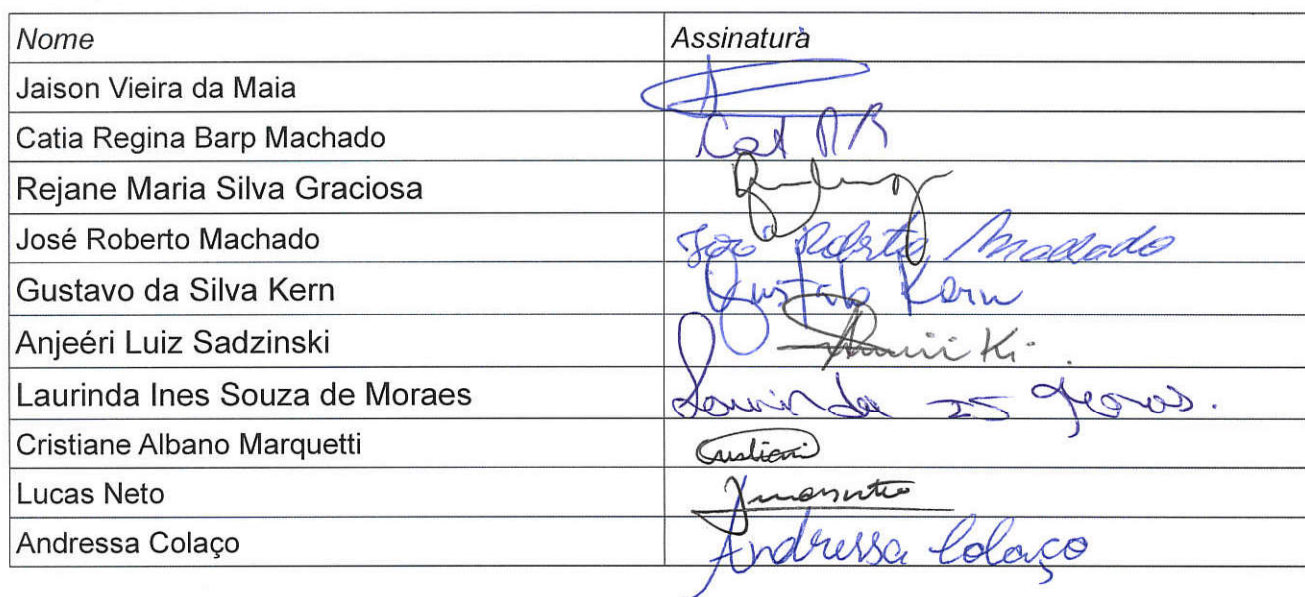 Nome Assinatura
Jaison Vieira da Maia
Catia Regina Barp Machado
Rejane Maria Silva Graciosa
José Roberto Machado José Roberto Machado
Gustavo da Silva Kern Gustavo Kern
Anjeéri Luiz Sadzinski
Laurinda Ines Souza de Moraes Laurinda
Cristiane Albano Marquetti Cristiani
Lucas Neto
Andressa Colaço Andressa Colaço